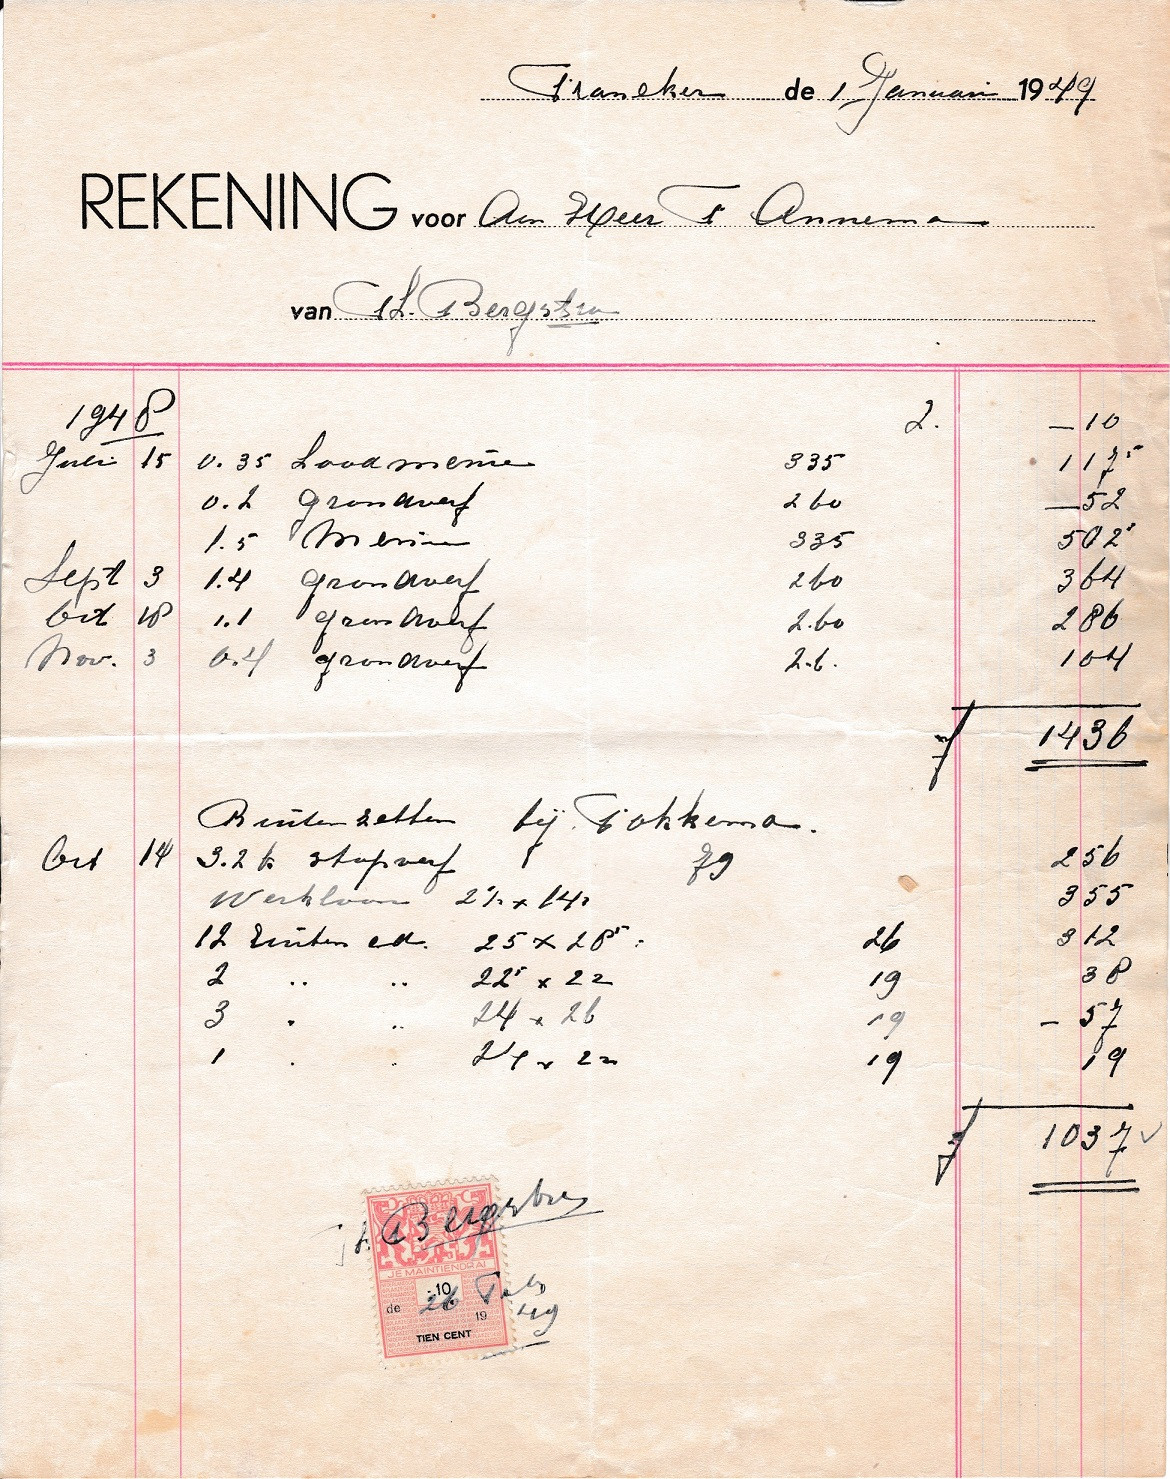 Franeker de 1 Januari 1949
REKENING voor Aan Heer F Annema
van Th. Bergstra
1948 2. - 10
Juli 15 0.35 Loodmenie 335 117⁵
0.2 grondverf 260 - 52
1.5 Menie 335 502⁵
Sept 3 1.4 grondverf 260 364
Oct 18 1.1 grondverf 2.60 286
Nov. 3 0.4 grondverf 2.6. 104
f 1436
Ruiten zetten bij Fokkema.
Oct 14 3.2 k stopverf 79 256
Werkloon 2½ x 142 355
12 Ruiten ed. 25 x 28⁵ 26 312
2 .. .. 22⁵ x 22 19 38
3 . .. 24 x 26 19 - 57
1 . . 24 x 22 19 19
f 1037 ✓
Th. Bergstra
JE MAINTIENDRAI
10
de 26 Feb 1949
TIEN CENT